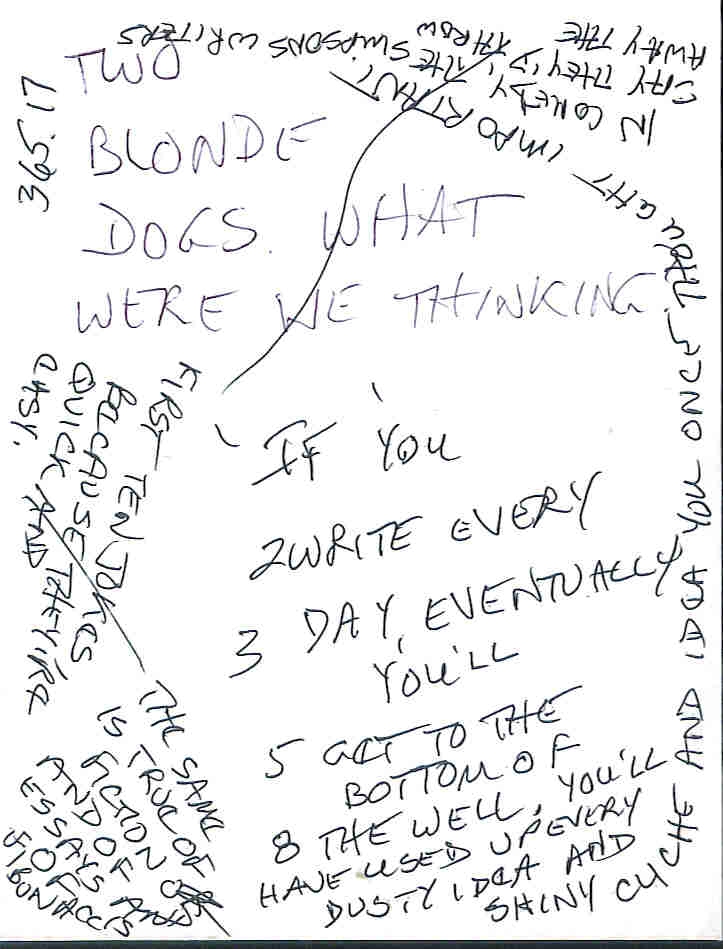 365.17
TWO
BLONDE
DOGS. WHAT
WERE WE THINKING
IF YOU
2 WRITE EVERY
3 DAY, EVENTUALLY
YOU'LL
5 GET TO THE
BOTTOM OF
8 THE WELL, YOU'LL
HAVE USED UP EVERY
DUSTY IDEA AND
SHINY CLICHE AND IDEA YOU ONCE THOUGHT IMPORTANT.
IN COMEDY, THE SIMPSONS WRITERS
SAY THEY'D THROW
AWAY THE
FIRST TEN JOKES
BECAUSE THEY'RE
QUICK AND
EASY.
THE SAME
IS TRUE OF
FICTION
AND OF
ESSAYS AND
OF
FIBONACCIS